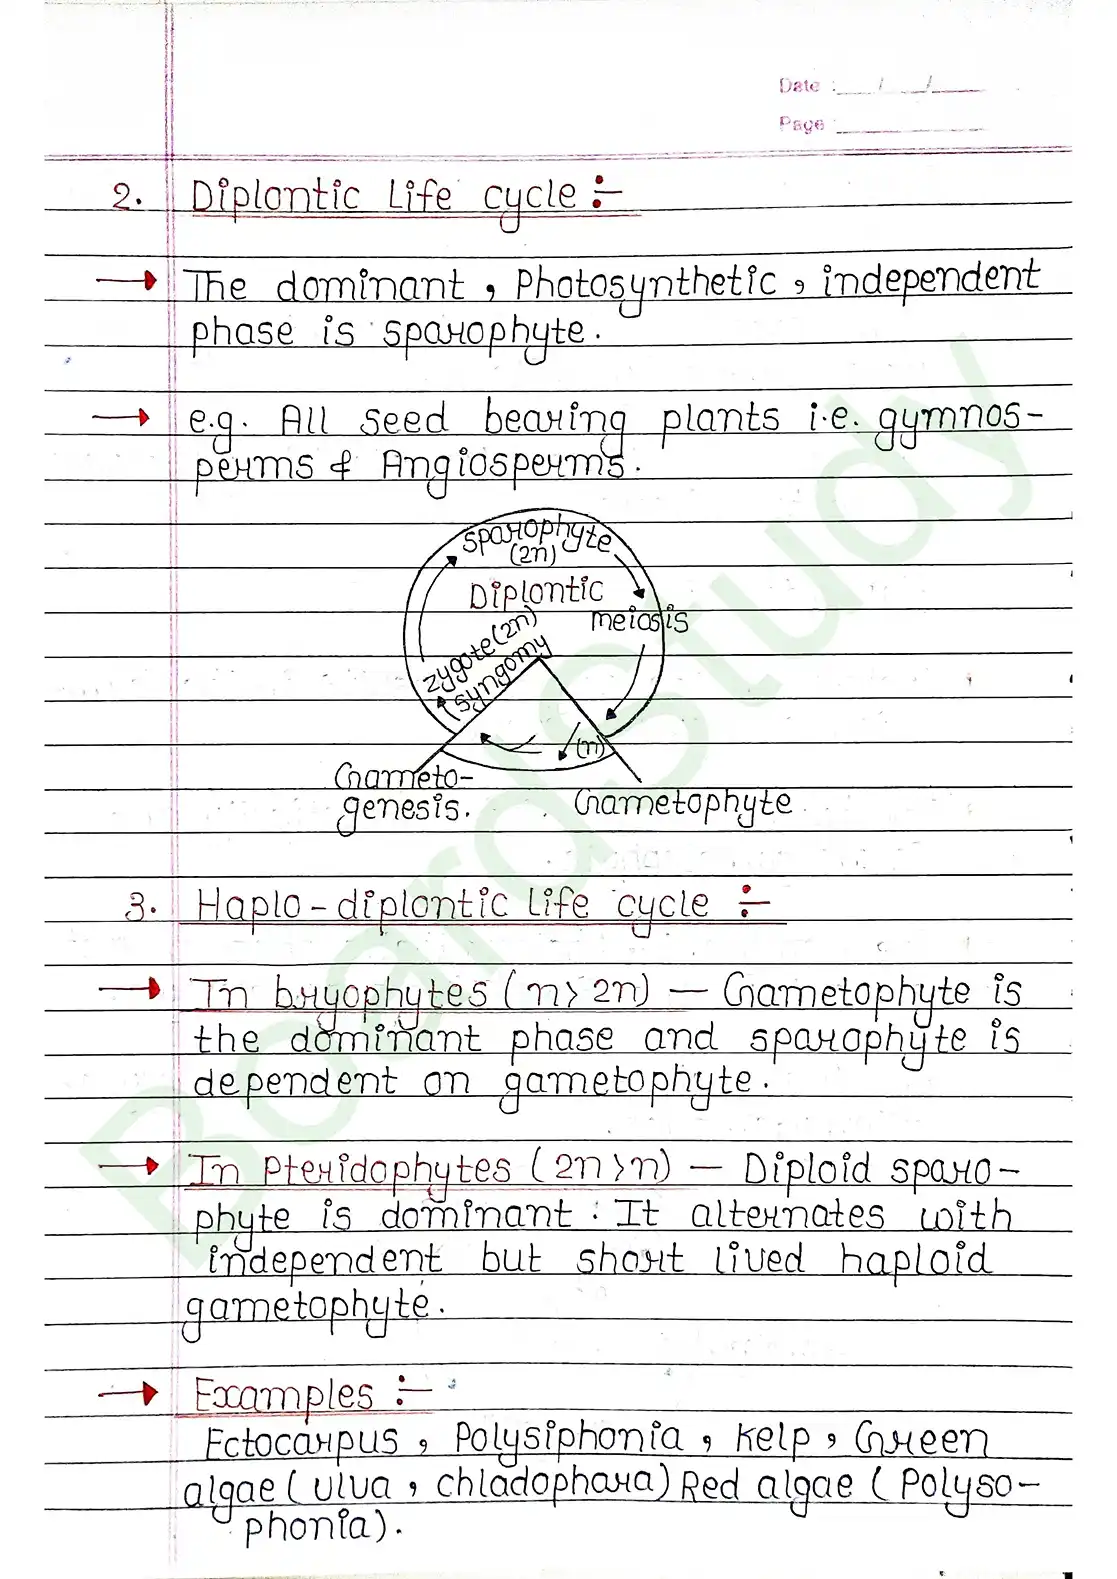 Date : __/__/__
Page ________
2. Diplontic Life cycle :-
→ The dominant, Photosynthetic, independent
phase is sporophyte.
→ e.g. All seed bearing plants i.e. gymnos-
perms & Angiosperms.
sporophyte
(2n)
Diplontic
meiosis
zygote (2n)
syngomy
(n)
Gameto-
genesis.
Gametophyte
3. Haplo-diplontic Life cycle :-
→ In bryophytes (n> 2n) — Gametophyte is
the dominant phase and sporophyte is
dependent on gametophyte.
→ In Pteridophytes (2n>n) — Diploid sporo-
phyte is dominant. It alternates with
independent but short lived haploid
gametophyte.
→ Examples :-
Ectocarpus, Polysiphonia, Kelp, Green
algae (ulva, chladophora) Red algae (Polyso-
phonia).
BoardStudy